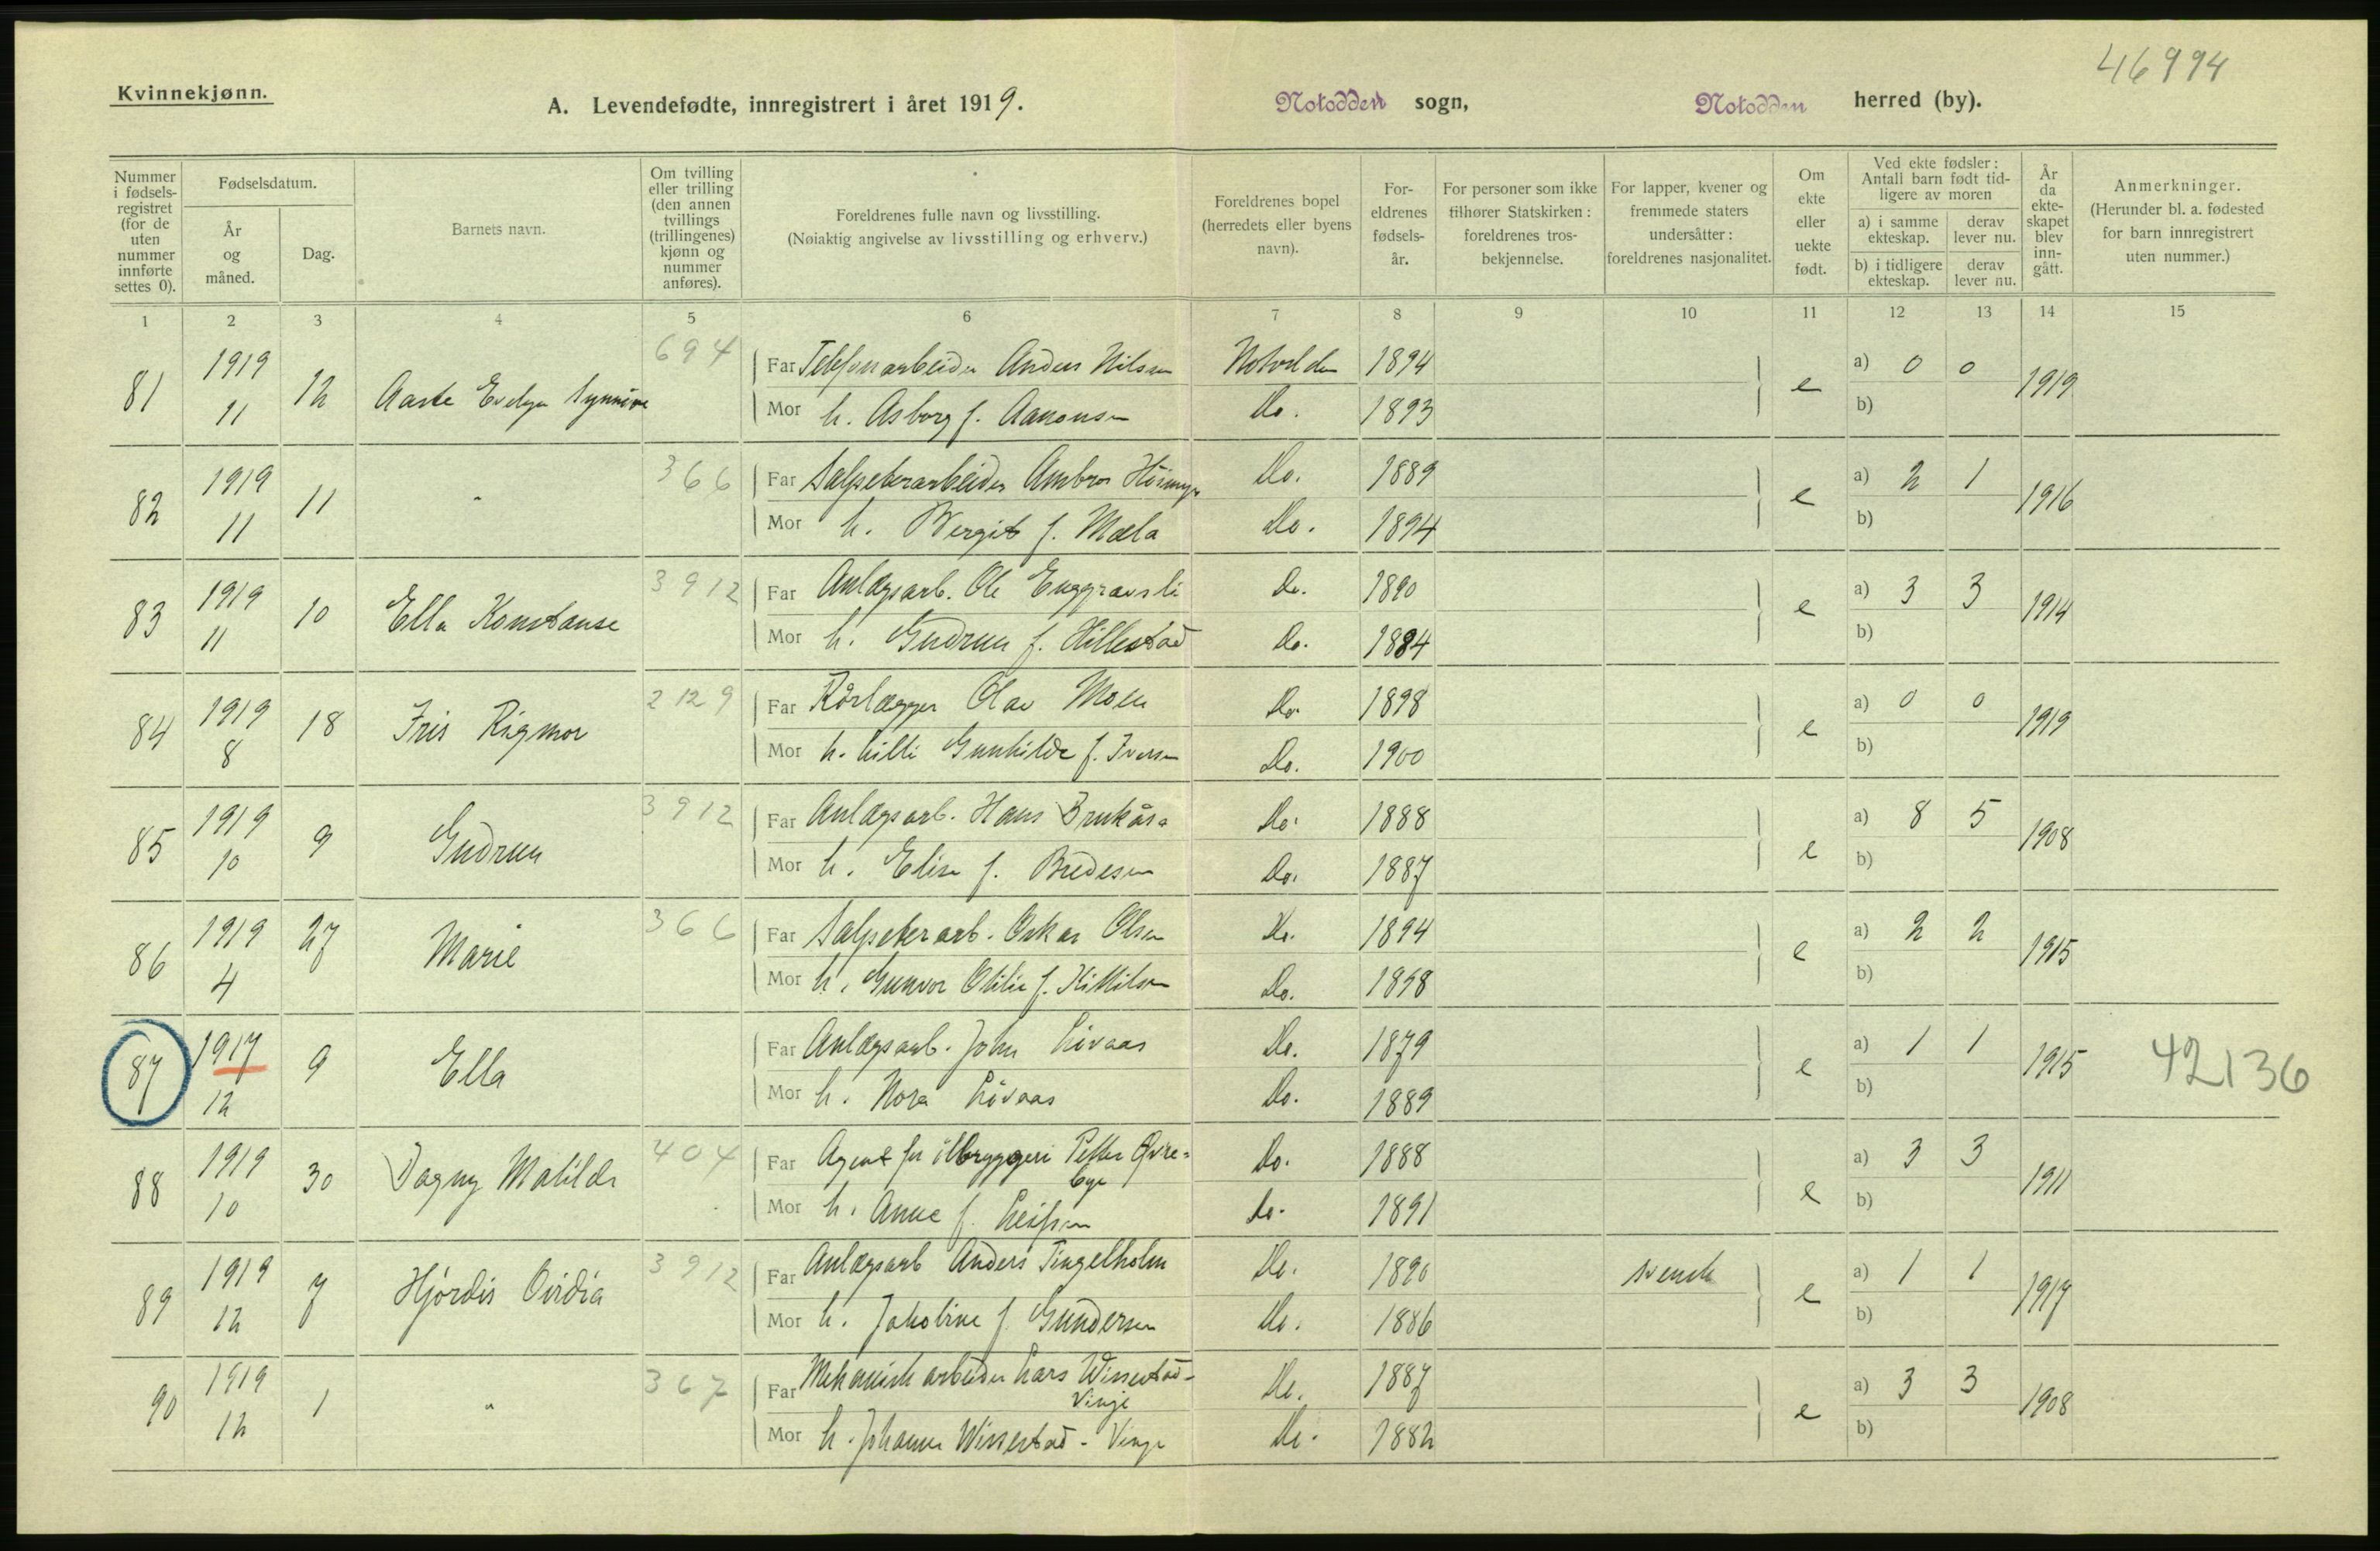 46994
Kvinnekjønn.
A. Levendefødte, innregistrert i året 1919. Notodden sogn, Notodden herred (by).
Nummer i fødselsregistret (for de uten nummer innførte settes 0).
Fødselsdatum.
År og måned.
Dag.
Barnets navn.
Om tvilling eller trilling (den annen tvillings (trillingenes) kjønn og nummer anføres).
Foreldrenes fulle navn og livsstilling. (Nøiaktig angivelse av livsstilling og erhverv.)
Foreldrenes bopel (herredets eller byens navn).
Foreldrenes fødselsår.
For personer som ikke tilhører Statskirken: foreldrenes trosbekjennelse.
For lapper, kvener og fremmede staters undersåtter: foreldrenes nasjonalitet.
Om ekte eller uekte født.
Ved ekte fødsler: Antall barn født tidligere av moren
a) i samme ekteskap. derav lever nu.
b) i tidligere ekteskap. derav lever nu.
År da ekteskapet blev inngått.
Anmerkninger. (Herunder bl. a. fødested for barn innregistrert uten nummer.)
1 2 3 4 5 6 7 8 9 10 11 12 13 14 15
81 1919 11 12 Aaste Evelyn Synnive 694
Far Telefonarbeider Anders Nilsen Notodden 1894 e a) 0 0 1919
Mor h. Asborg f. Aanonsen Do. 1893 b)
82 1919 11 11 - 366
Far Salpeterarbeider Ambros Do. 1889 e a) 2 1 1916
Mor h. Bergit f. Mæla Do. 1894 b)
83 1919 11 10 Ella Konstanse 3912
Far Anlægsarb. Ole Enggravsli Do. 1890 e a) 3 3 1914
Mor h. Gudrun f. Hillestad Do. 1884 b)
84 1919 8 18 Iris Rigmor 2129
Far Rørlægger Olav Moen Do. 1898 e a) 0 0 1919
Mor h. Lilli Gunhilde f. Iversen Do. 1900 b)
85 1919 10 9 Gudrun 3912
Far Anlægsarb. Hans Brukåsa Do. 1888 e a) 8 5 1908
Mor h. Elise f. Bredesen Do. 1887 b)
86 1919 4 27 Marie 366
Far Salpeterarb. Oskar Olsen Do. 1894 e a) 2 2 1915
Mor h. Gunvor Otilie f. Kittilsen Do. 1898 b)
87 1917 12 9 Ella
Far Anlægsarb. John Løvaas Do. 1879 e a) 1 1 1915 42136
Mor h. Nora Løvaas Do. 1889 b)
88 1919 10 30 Dagny Matilde 404
Far Agent for ølbryggeri Petter Øvre-
bye Do. 1888 e a) 3 3 1911
Mor h. Anne f. Leifsen Do. 1891 b)
89 1919 12 7 Hjørdis Ovidia 3912
Far Anlægsarb Anders Tingelholm Do. 1890 svensk e a) 1 1 1917
Mor h. Jakobine f. Gundersen Do. 1886 b)
90 1919 12 1 " 367
Far Mekanisk arbeider Lars Wissestad-
Vinje Do. 1887 e a) 3 3 1908
Mor h. Johanne Wissestad-Vinje Do. 1882 b)